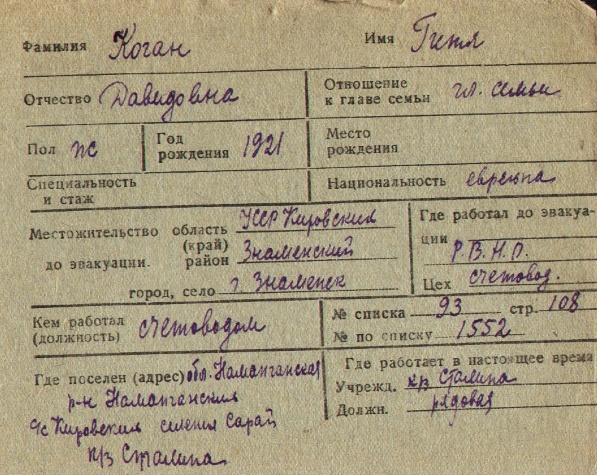 Фамилия Коган Имя Гитя
Отчество Давидовна Отношение к главе семьи гл. семьи
Пол ж Год рождения 1921 Место рождения
Специальность и стаж Национальность еврейка
Местожительство до эвакуации. область (край) УССР Кировский
район Знаменский
город, село г. Знаменск
Где работал до эвакуации Р.В.Н.О.
Цех счетовод.
Кем работал (должность) счетоводом
№ списка 93 стр. 108
№ по списку 1552
Где поселен (адрес) обл. Наманганская
р-н Наманганский
с/с Кировский селения Сарай
к/з Сталина
Где работает в настоящее время
Учрежд. к/з Сталина
Должн. рядовая